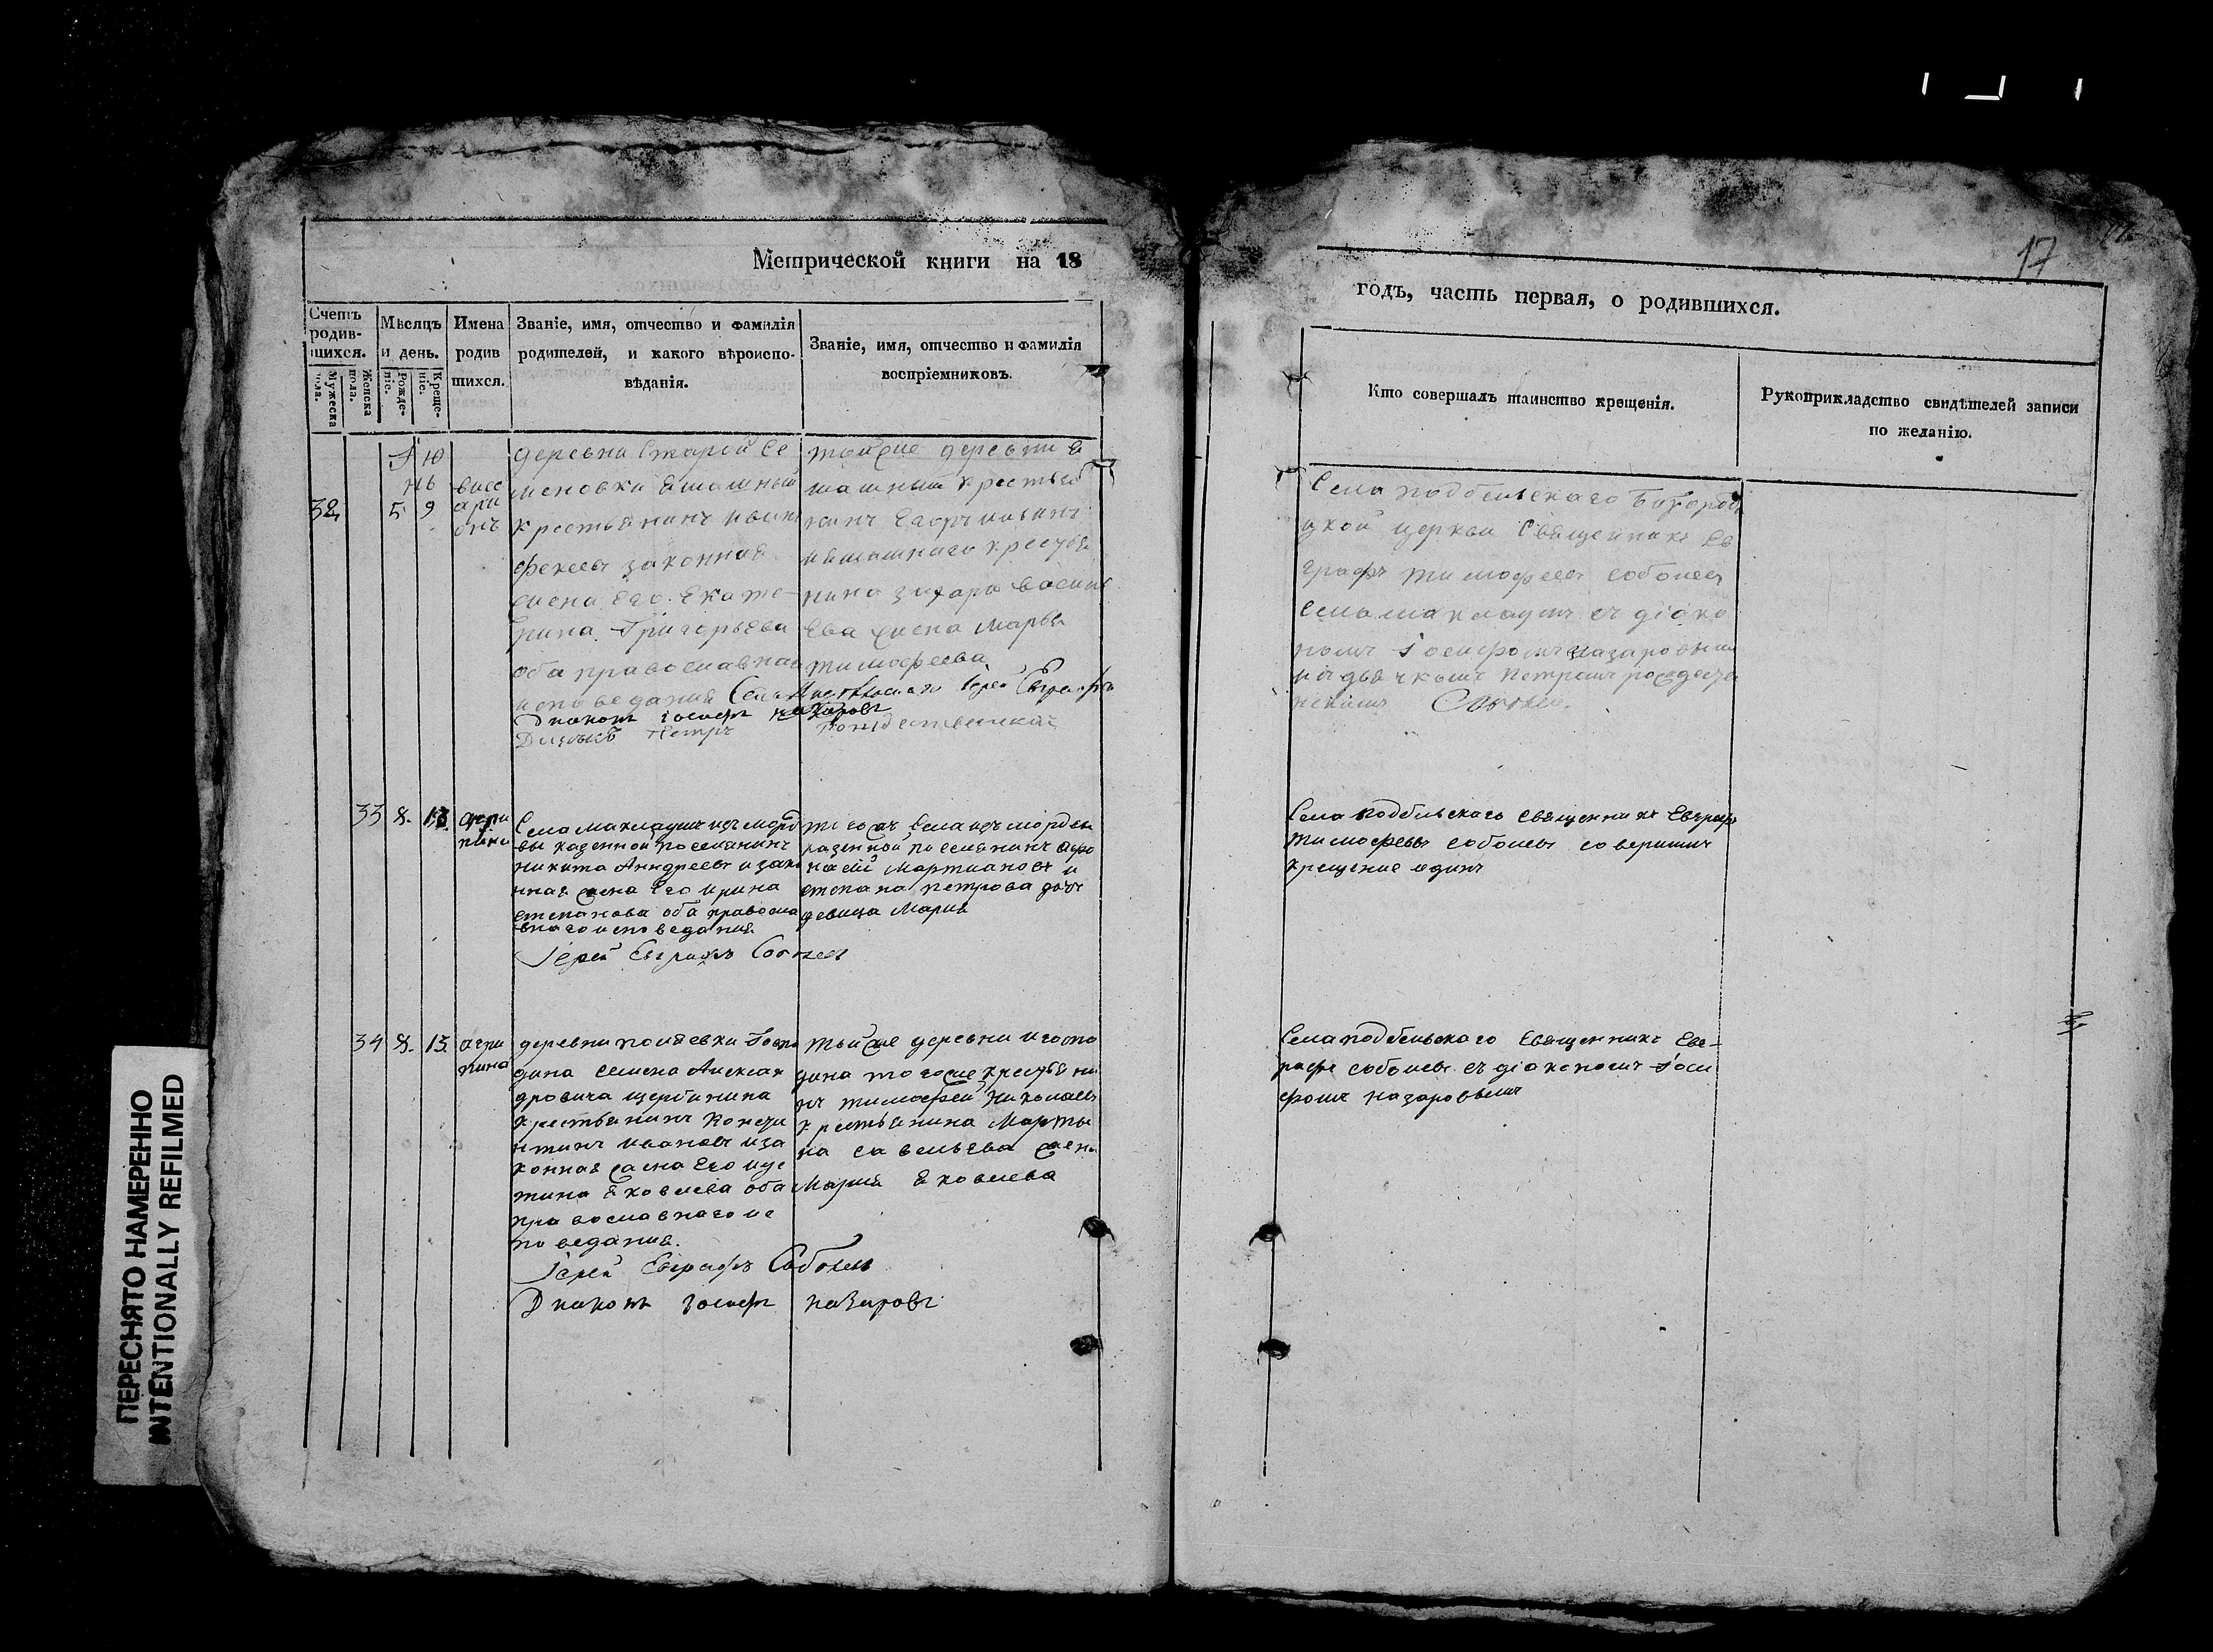 17
Метрической книги на 18
годъ, часть первая, о родившихся.
Счетъ родив-шихся.
Мужеска пола.
Женска пола.
Мѣсяцъ и день.
Рожде-ніе.
Креще-ніе.
Имена родив шихся.
Званіе, имя, отчество и фамилія
родителей, и какого вѣроиспо-
вѣданія.
Званіе, имя, отчество и фамилія
воспріемниковъ.
Кто совершалъ таинство крещенія.
Рукоприкладство свидѣтелей записи
по желанію.
Ію
нь
32 5 9
висс
ари
онъ
деревни Старой Се
меновки Ямашный
крестьянинъ
законная
жена Его Екате
рина Григорьева
оба православнаго
исповедания
Диаконъ Iосифъ Назаровъ
Дьячокъ Петръ Рождественский
тойже деревни Я
машный крестья
нинъ
ямашнаго крестья
нина захара васильева
жена Марья
тимофеева
Села подбельскаго Богород
цкой церкви Священникъ Ев
графъ тимофеевъ соболевъ
села маклаушъ съ діако
номъ Iосифомъ назаровымъ
и дьячкомъ петромъ рождестве
нскимъ
33 8. 13.
агри
пина
Села маклаушъ изъ морд
вы казенной поселянинъ
никита Андреевъ и зако
нная жена Его ирина
степанова оба правосла
внаго исповедания
Iерей Евграфъ Соболевъ
тогожъ Села изъ мордвы
казенной поселянинъ афа
насий Мартиановъ и
степана петрова дочь
девица Мария
Села подбельскаго священникъ Евграфъ
тимофеевъ соболевъ совершилъ
крещение одинъ
34 8. 13.
агри
пина
деревни поляевки Госпо
дина семена Алексан
дровича щербинина
крестьянинъ Конста
нтинъ ивановъ и за
конная жена Его иус
тина Яковлева оба
православнаго ис
поведания.
Iерей Евграфъ Соболевъ
Диаконъ Iосифъ назаровъ
тойже деревни и госпо
дина тогоже крестьяни
нъ тимофей николаевъ
крестьянина Марты
на савельева жена
Мария Яковлева
Села подбельскаго священникъ Евг-
рафъ соболевъ съ діакономъ Iоси
фомъ назаровымъ
ПЕРЕСНЯТО НАМЕРЕННО
INTENTIONALLY REFILMED